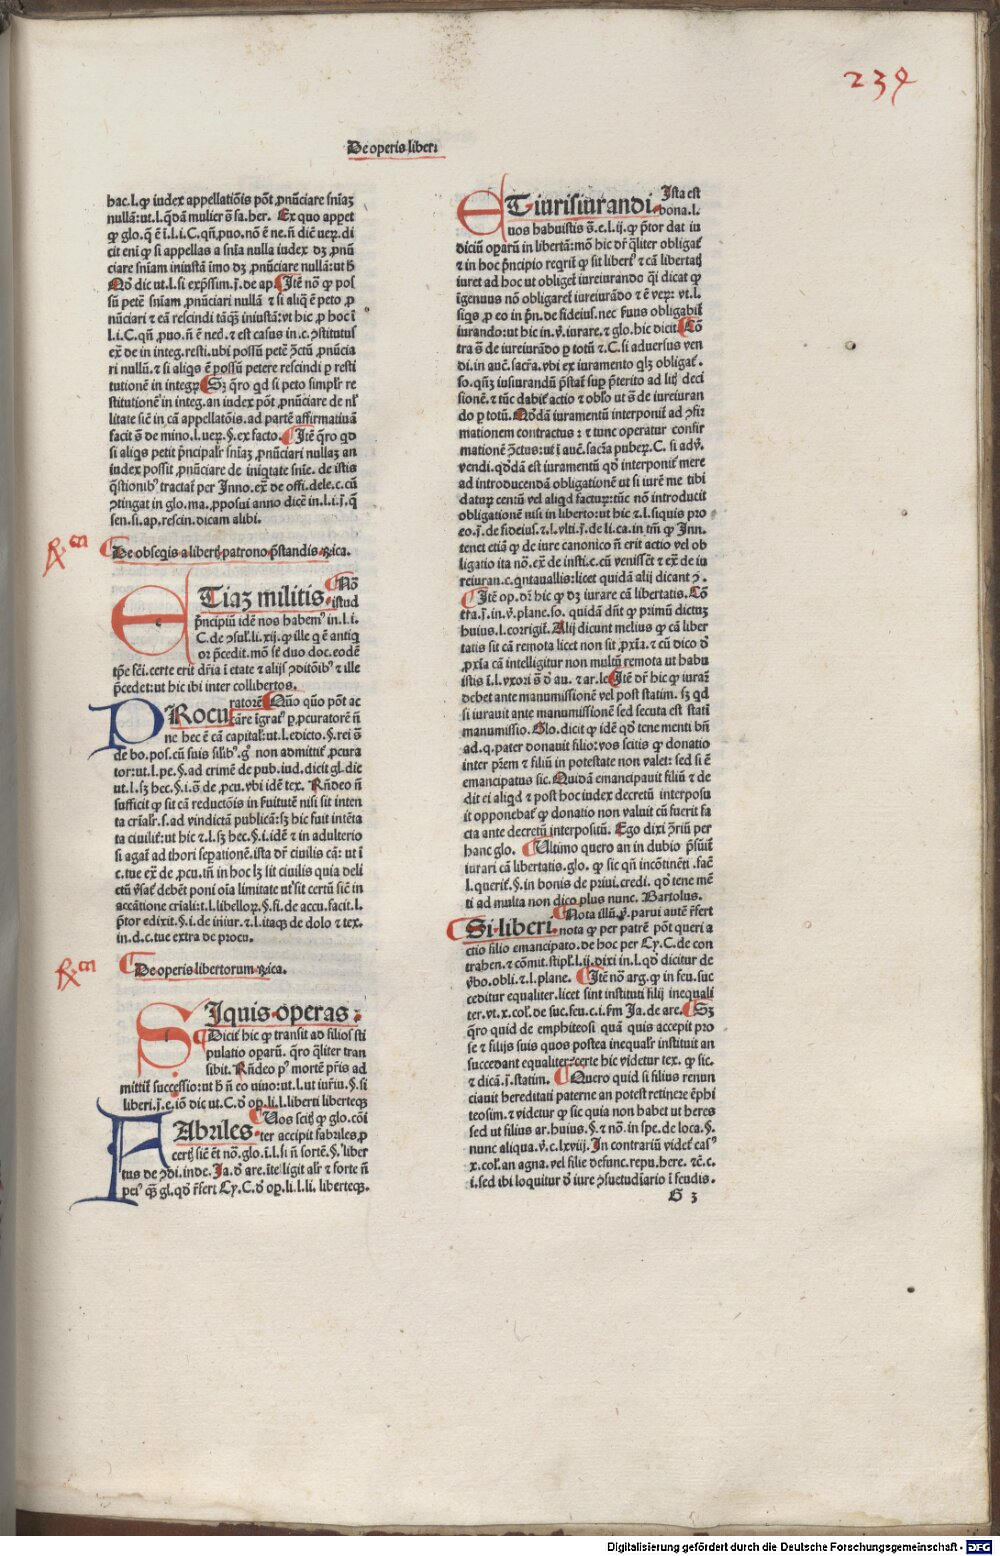 239
De operis liber:
hac.l.ꝙ iudex appellatiõis põt ꝓnũciare sniaꝫ
nullã:ut.l.q̃dã mulier õ sa.her. Ex quo appet
ꝙ glo.q̃ ẽ ĩ.l.i.C.qñ,ꝓuo.nõ ẽ ne.ñ dic̃ ueꝝ.di
cit eni ꝙ si appellas a snia nulla iudex dꝫ ꝓnũ
ciare sniam iniustã imo dꝫ ꝓnũciare nullã:ut ħ
Nõ dic ut.l.si exp̃ssim.j̃.de ap. Itẽ nõ ꝙ pos
sũ petẽ sniam ꝓnũciari nullã ⁊ si aliq̃ ẽ peto ꝓ
nũciari ⁊ eã rescindi tãq̃ꝫ iniustã:vt hic ꝓ hoc ĩ
l.i.C.qñ ꝓuo.ñ ẽ neč.⁊ est casus in.c.ꝯstitutus
ex̃ de in integ.resti.ubi possũ petẽ ꝯctũ ꝓnũcia
ri nullũ.⁊ si aliqs ẽ possũ petere rescindi ꝑ resti
tutionẽ in integꝝ Sꝫ q̃ro qd si peto simplr̃ re
stitutionẽ in integ.an index põt ꝓnũciare de nl̃
litate siẽ in cã appellatõis.ad partẽ affirmatiuã
facit õ de mino.l.ueꝝ.§.ex facto. Itẽ q̃ro qd
si aliqs petit p̃ncipalr̃ sniaꝫ ꝓnũciari nullaꝫ an
iudex possit ꝓnũciare de iniqtate snie. de istis
q̃stionibꝰ tractat̃ per Inno.ex̃ de offi.dele.c.cũ
ꝯtingat in glo.ma.ꝓposui anno dicẽ in.l.i.j̃.q̃
sen.si.ap.rescin.dicam alibi.
De obseqis a libert̃ patrono p̃standis.rꝫica.
Etiaꝫ militis. Nõ
istud
p̃ncipiũ idẽ nos habemꝰ in.l.i.
C.de ꝯsul̃.li.xij.ꝙ ille q̃ ẽ antiq
or p̃cedit.mõ sẽ duo doc.eodẽ
tp̃e sc̃i.certe erit dr̃ia ĩ etate ⁊ alijs ꝯditõibꝰ ⁊ ille
p̃cedet:ut hic ibi inter collibertos.
Procu ratorẽ Quõ quõ põt ac
cãre ĩgratꝰ ꝑ ꝓcuratorẽ ñ
ne hec ẽ cã capital̃:ut.l.edicto.§.rei õ
de bo.pos.cũ suis similibꝰ.gͦ non admittit̃ ꝓcura
tor:ut.l.pe.§.ad crimẽ de pub.iud.dicit gl.dic
ut.l.sꝫ hec.§.i.õ de ꝓcu.vbi idẽ tex. Rñdeo ñ
sufficit ꝙ sit cã reductõis in ẽuitutẽ nisi sit inten
ta crialr̃.s.ad vindictã publicã:sꝫ hic fuit intẽta
ta ciuilit̃:ut hic ⁊.l.sꝫ hec.§.i.idẽ ⁊ in adulterio
si agat̃ ad thori sepationẽ.ista dr̃ ciuilis cã: ut ĩ
c.tue ex̃ de ꝓcu.tm̃ in hoc lꝫ sit ciuilis quia deli
ctũ ṽsat̃ debẽt poni oĩa limitate ut̃ sit certũ siẽ in
accẽatione criali:⁊.l.libelloꝝ.§.si.de accu.facit.l.
p̃tor edixit.§.i.de iniur.⁊.l.itaqꝫ de dolo ⁊ tex.
in.d.c.tue extra de procu.
De operis libertorum.rꝫica.
Siquis operas:
Dicit̃ hic ꝙ transit ad filios sti
pulatio oparũ.q̃ro q̃liter tran
sibit. Rñdeo pꝰ mortẽ pr̃is ad
mittit̃ successio:ut ħ ñ eo uiuo:ut.l.ut iurĩu.§.si
liberi.j̃.e.iõ dic ut.C.ď oꝑ.li.l.liberti liberteqꝫ
Fabriles. Uos scit̃ ꝙ glo.cõi
ter accipit fabriles.ꝓ
cert̃ siẽ ẽt nõ.glo.ĩ.l.si ñ sortẽ.§.liber
tus de ꝯdi.inde.Ja.ď are.ĩtelligit alr̃ ⁊ forte ñ
peiꝰ q̃ꝫ gl.qď r̃fert Cy.C.ď oꝑ.li.l.li. liberteqꝫ.
Et iurisiurandi. Ista est
bona.l.
uos habuistis õ.e.l.ij.ꝙ p̃tor dat iu
diciũ oparũ in libertã:mõ hic dr̃ q̃liter obligat̃
⁊ in hoc p̃ncipio reqrit̃ ꝙ sit libertꝰ ⁊ cã libertat̃
iuret ad hoc ut obliget̃ iureiurando q̃i dicat ꝙ
ĩgenuus nõ obligaret̃ iureiurãdo ⁊ ẽ veꝝ: vt.l.
siqs ꝓ eo in p̃n.de fideius.nec ẽuus obligabit̃
iurando:ut hic in.ṽ.iurare.⁊ glo.hic dicit. Cõ
tra õ de iureiurãdo ꝑ totũ ⁊.C.si aduersus ven
di.in auc̃.sacr̃a.vbi ex iuramento qlꝫ obligat̃.
so.qñꝫ iusiurandũ p̃stat̃ sup p̃terito ad lit̃ deci
sionẽ.⁊ tũc dabit̃ actio ⁊ obl̃o ut õ de iureiuran
do ꝑ totũ. Qñdã iuramentũ interponit̃ ad ꝯfir
mationem contractus:⁊ tunc operatur confir
mationẽ ꝯctus:ut ĩ auc̃.sacr̃a pubeꝝ.C.si adṽ.
vendi.qñdã est iuramentũ qď interponit̃ mere
ad introducendã obligationẽ ut si iurẽ me tibi
datuꝝ centũ vel aliqd factuꝝ:tũc nõ introducit
obligationẽ nisi in liberto:ut hic ⁊.l.siquis pro
eo.j̃.de fideius.⁊.l.vlti.j̃.de li.ca.in tm̃ ꝙ Inn.
tenet etiã ꝙ de iure canonico ñ erit actio vel ob
ligatio ita nõ.ex̃ de insti.c.cũ venissẽt ⁊ ex̃ de iu
reiuran.c.qntauallis:licet quidã alij dicant ꝯ̃.
Itẽ op.dr̃ hic ꝙ dꝫ iurare cã libertatis. Cõ
tr̃a.j̃.in.ṽ.plane.so. quidã dñt ꝙ primũ dictuꝫ
huius.l.corrigit̃. Alij dicunt melius ꝙ cã liber
tatis sit cã remota licet non sit ꝓxĩa.⁊ cũ dico ď
ꝓxĩa cã intelligitur non multũ remota ut habu
istis ĩ.l.vxori õ ď au.⁊ ar.le Itẽ dr̃ hic ꝙ iurar̃
debet ante manumissionẽ vel post statim. sꝫ qd
si iurauit ante manumissionẽ sed secuta est statĩ
manumissio. Glo.dicit ꝙ idẽ qď tene menti bñ
ad.q.pater donauit filio:vos scitis ꝙ donatio
inter pr̃em ⁊ filiũ in potestate non valet: sed si ẽ
emancipatus sic. Quidã emancipauit filiũ ⁊ de
dit ei aliqd ⁊ post hoc iudex decretũ interposu
it opponebat̃ ꝙ donatio non valuit cũ fuerit fa
cta ante decretũ interpositũ. Ego dixi ꝯriũ per
hanc glo. Ultimo quero an in dubio p̃sũit̃
iurari cã libertatis.glo. ꝙ sic qñ incõtinẽti .facẽ
l.querit̃.§.in bonis de priui.credi. qď tene mẽ
ti ad multa non dico plus nunc. Bartolus.
Si liberi. Nota illũ.ꝟ̃.parui autẽ r̃fert
nota ꝙ per patrẽ põt queri a
ctio filio emancipato.de hoc per Cy.C.de con
trahen.⁊ cõmit.stipl̃.l.ij.dixi in.l.qď dicitur de
ṽbo.obli.⁊.l.plane. Itẽ nõ arg.ꝙ in feu.suc
ceditur equaliter.licet sint instituti filij inequali
ter.vt.x.col̃.de suc.feu.c.i.fm Ja.de are. Sꝫ
q̃ro quid de emphiteosi quã quis accepit pro
se ⁊ filijs suis quos postea inequalr̃ instituit an
succedant equaliter:certe hic videtur tex. ꝙ sic.
⁊ dicã.j̃.statim. Quero quid si filius renun
ciauit hereditati paterne an potest retinere ẽphi
teosim.⁊ videtur ꝙ sic quia non habet ut heres
sed ut filius ar.huius.§.⁊ nõ.in spe.de loca.§.
nunc aliqua.ṽ.c.lxviij. In contrariũ videt̃ casꝰ
x.col̃.an agna.vel filie defunc.repu.here. ⁊c̃.c.
i.sed ibi loquitur ď iure ꝯsuetudĩario ĩ feudis.
G 3
Digitalisierung gefördert durch die Deutsche Forschungsgemeinschaft - DFG